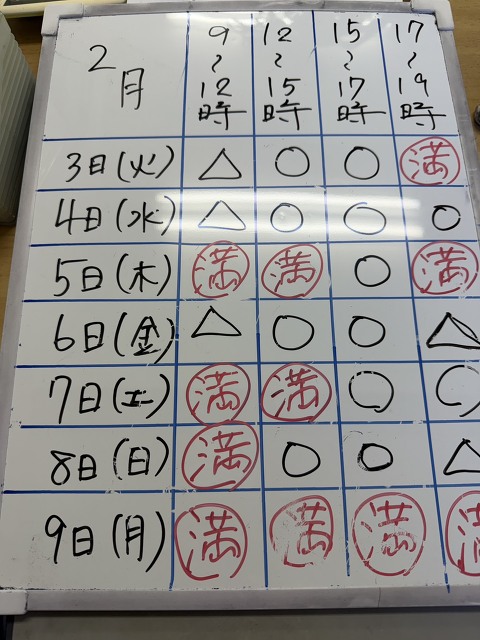 2月 9〜12時 12〜15時 15〜17時 17〜19時
3日(火) △ ○ ○ 満
4日(水) △ ○ ○ ○
5日(木) 満 満 ○ 満
6日(金) △ ○ ○ △
7日(土) 満 満 ○ ○
8日(日) 満 ○ ○ △
9日(月) 満 満 満 満